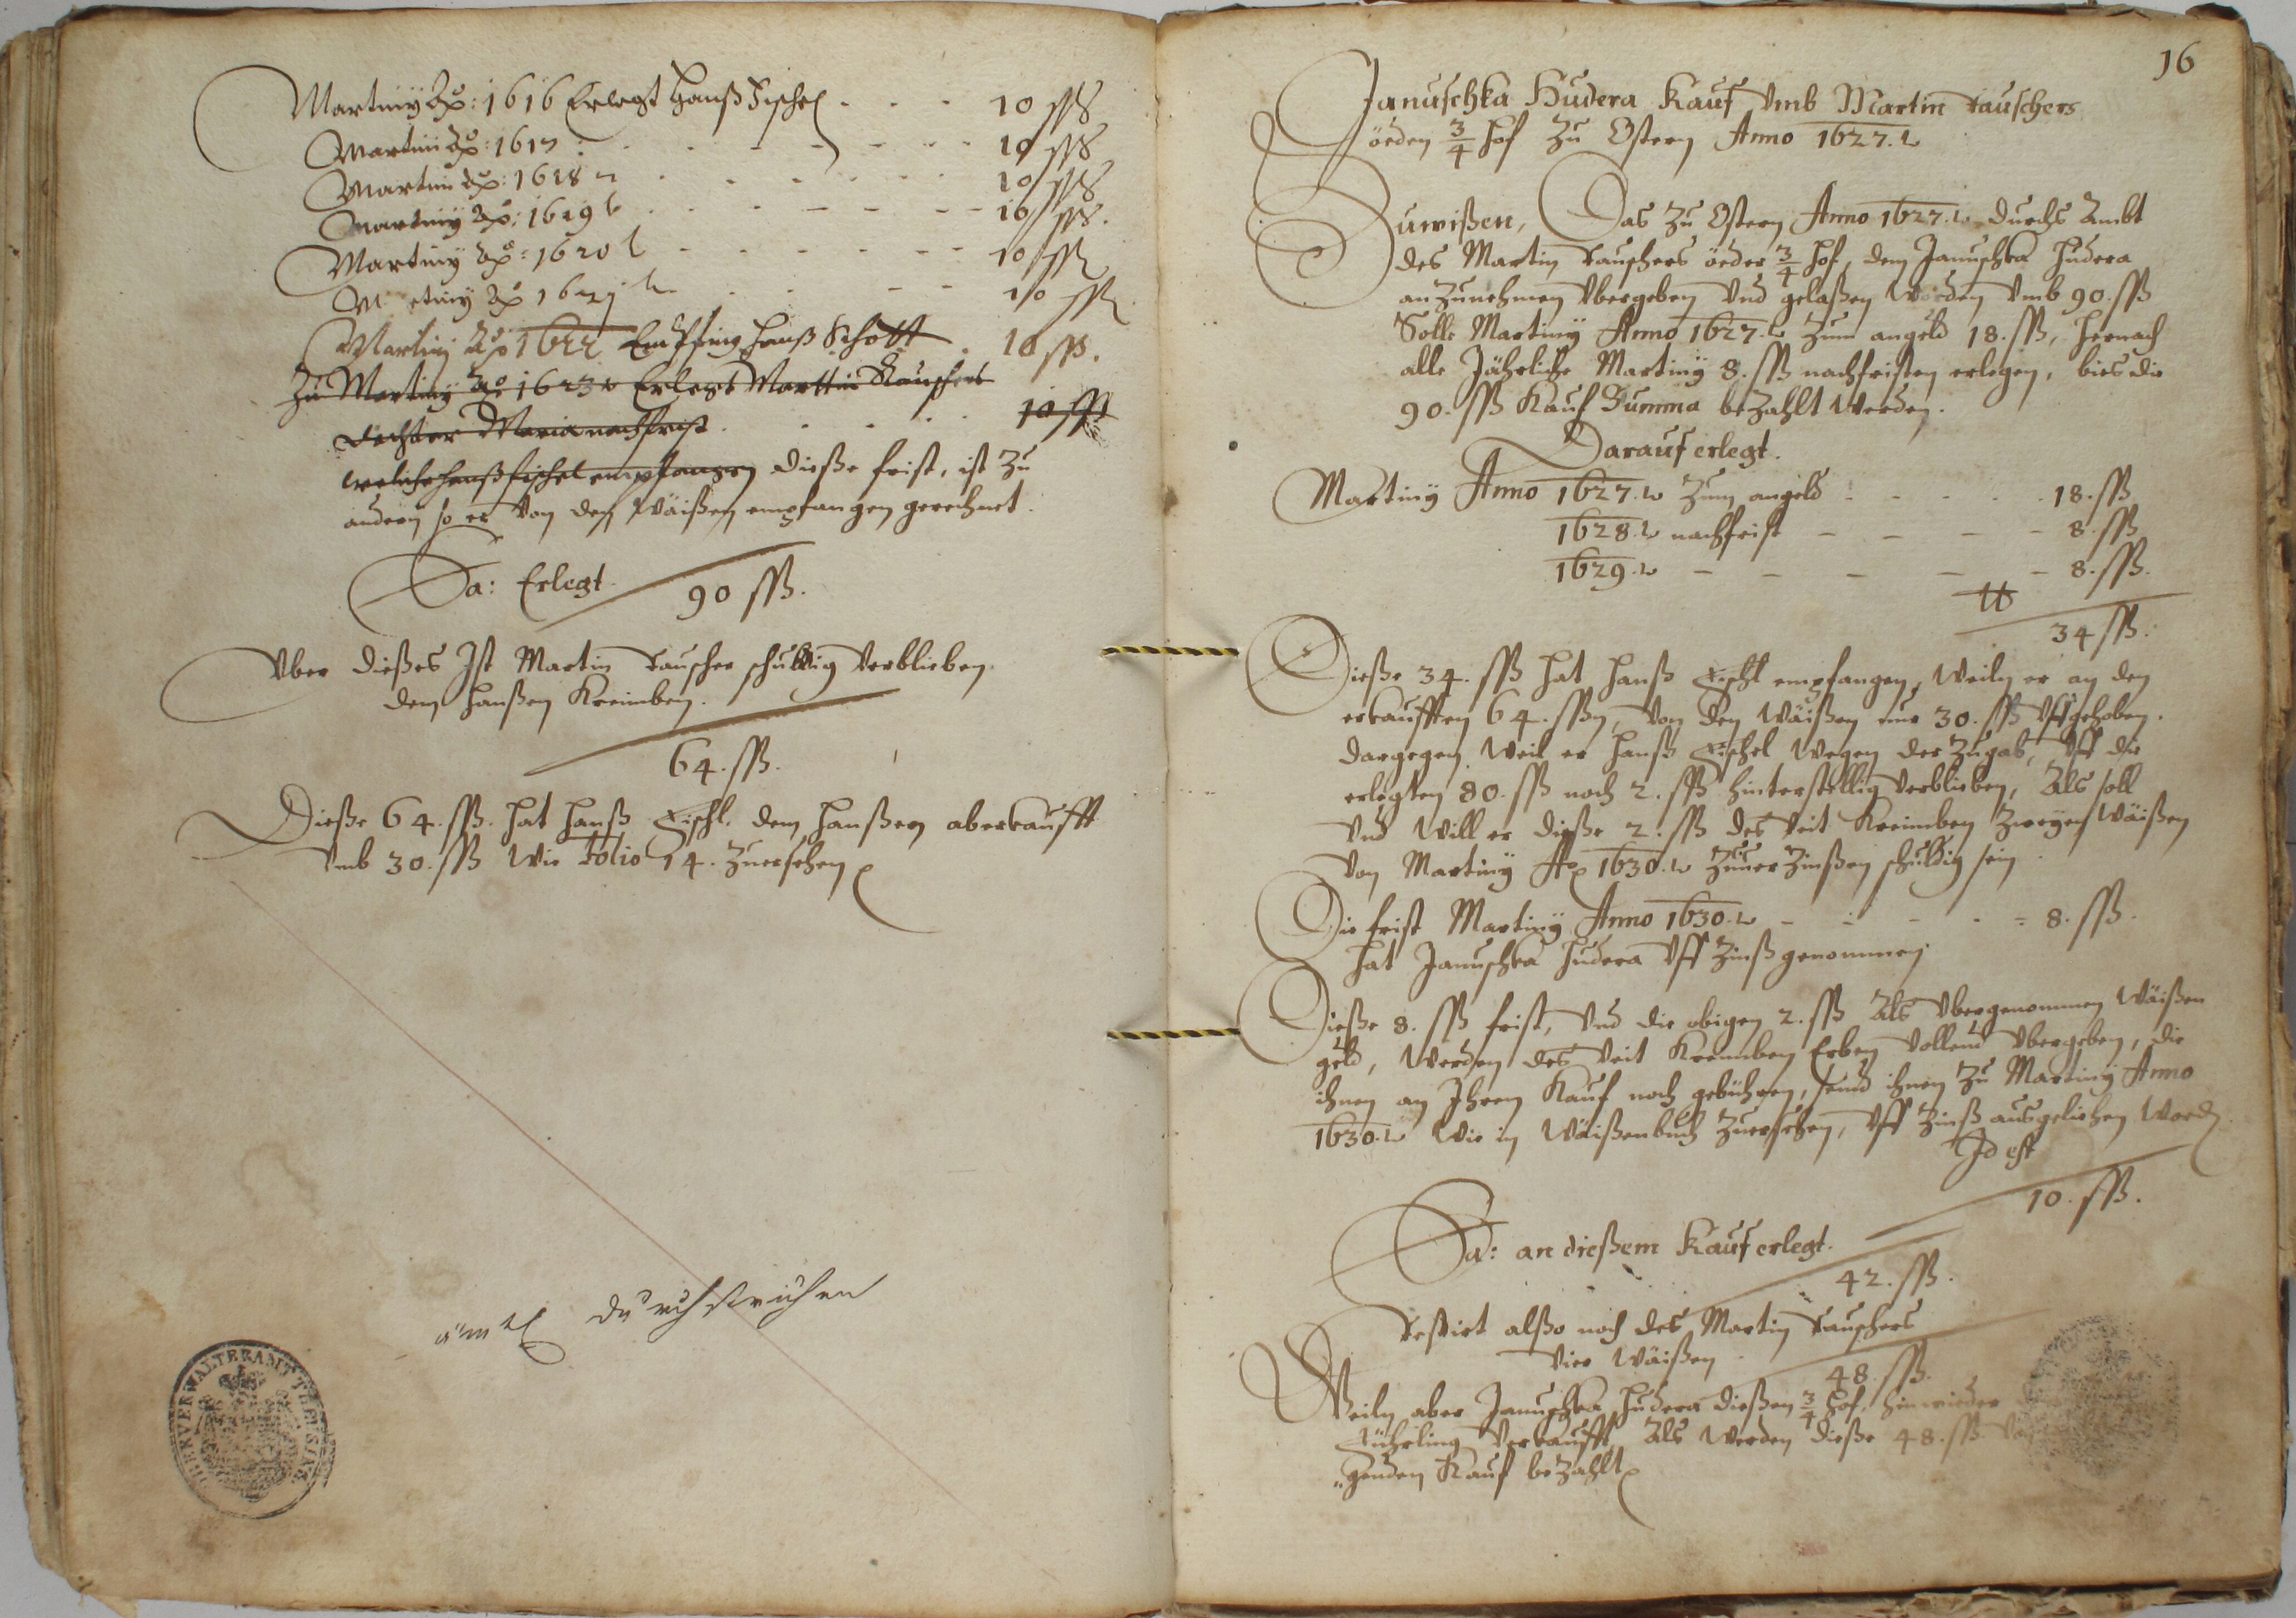 Martiny Ao: 1616 Erlegt Hanß Fischel - - - 10 ßß
Martini Ao: 1617 - - - - - - 10 ßß
Martini Ao: 1618 - - - - - 10 ßß
Martiny Ao: 1619 - - - - - 10 ßß.
Martiny Ao: 1620 - - - - - 10 ßß
Martiny Ao 1621 - - - - 10 ßß
Martinj Ao 1622 Empfing Hanß Schott . 10 ßß.
Zu Martiny Ao 1623 Erlegt Marttin Tauschers
Dochter Maria nachfrist . . . 10 ßß
welliche Hanß Fischel empfangen dieße frist, ist Zu
andern so er von den Waißen empfangen gerechnet.
Sa: Erlegt.
90 ßß.
Vber dießes Ist Martin Tauscher schuldig Verblieben.
dem Hanßen Kreimben.
64. ßß.
Dieße 64. ßß. hat Hanß Fischl. dem Hanßen aberkaufft
Vmb 30. ßß wie Folio 14. Zuersehen
durchstrichen
OBERVERWALTERAMT THEUSING
16
Januschka Hudera Kauf Vmb Martin Tauschers
öeden 3/4 Hof Zu Ostern Anno 1627.
Zuwißen, Das Zu Ostern Anno 1627. durchs Ambt
des Martin Tauschers öeder 3/4 Hof, dem Januschka Hudera
anZunehmen Vbergeben Vnd gelaßen worden Vmb 90. ßß
Solle Martiny Anno 1627. Zum angeld 18. ßß, hernach
alle Jährliche Martiny 8. ßß nachfristen erlegen, bies die
90. ßß Kauf Summa beZahlt werden.
Darauf erlegt.
Martiny Anno 1627. Zum angeld - - - - 18. ßß
1628. nachfrist - - - - 8. ßß
1629. - - - - - 8. ßß.
34 ßß.
Dieße 34. ßß hat Hanß Fischl empfangen, Weiln er an den
erkaufften 64. ßßn, von den Waißen nur 30. ßß Vffgehoben.
dargegen weil er Hanß Fischel wegen der Zugab, Vff die
erlegten 80. ßß noch 2. ßß hinterstellig verblieben, Als soll
Vnd will er dieße 2. ßß des Veit Kreimben Zweyen Waißen
von Martiny Ao 1630. Zuuer Zinßen schuldig sein.
Die frist Martiny Anno 1630. - - - - 8. ßß.
hat Januschka Hudera Vff Zinß genommen.
Dieße 8. ßß frist, Vnd die obigen 2. ßß Als Vbergenommen Waißen
geld, werden des Veit Kreimben Erben Vollend Vbergeben, die
ihnen an Ihrem Kauf noch gebühren, seind ihnen Zu Martiny Anno
1630. wie in Waißenbuch Zuersehen, Vff Zinß ausgeliehen word
Id est
10. ßß.
Sa: an dießem Kauf erlegt.
42. ßß.
Restirt alßo noch des Martin Tauschers
Vier Waißen
48. ßß.
Weiln aber Januschka Hudera dießen 3/4 Hof, hinwieder
Verkaufft, Als werden dieße 48. ßß
genden Kauf beZahlt